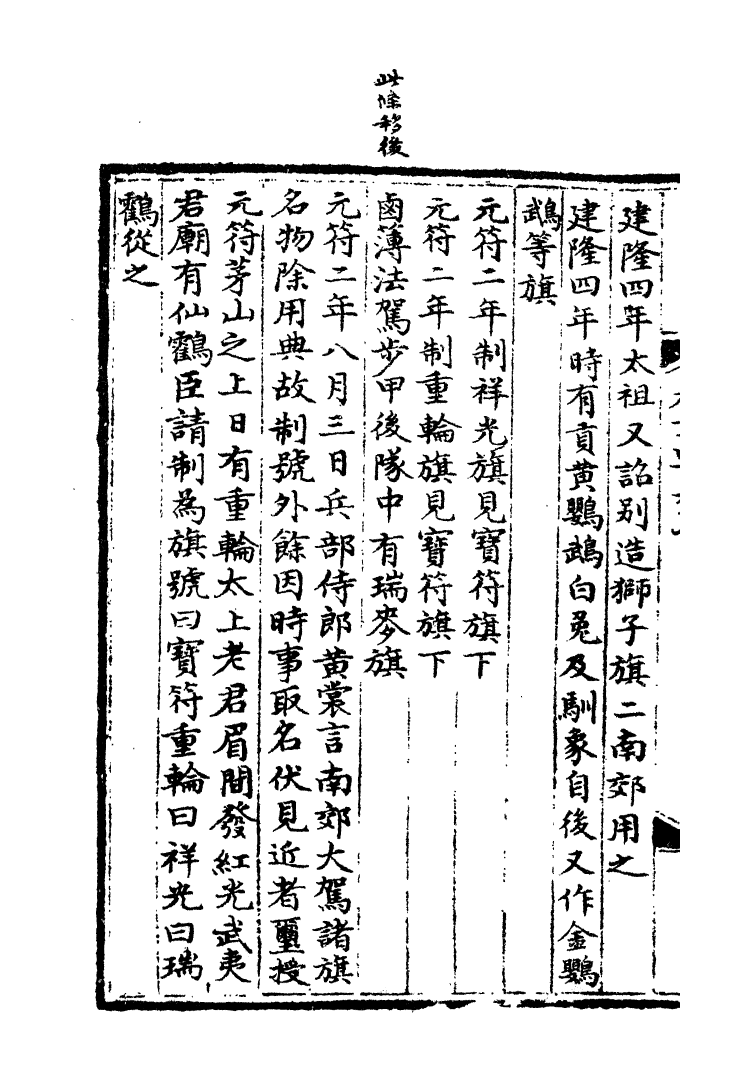 此條移後
建隆四年太祖又詔别造獅子旗二南郊用之
建隆四年時有貢黄鸚鵡白兎及馴象自後又作金鸚
鵡等旗
元符二年制祥光旗見寶符旗下
元符二年制重輪旗見寶符旗下
鹵薄法駕步甲後隊中有瑞麥旗
元符二年八月三日兵部侍郎黄裳言南郊大駕諸旗
名物除用典故制號外餘因時事取名伏見近者璽授
元符茅山之上日有重輪太上老君眉間發紅光武夷
君廟有仙鶴臣請制為旗號曰寶符重輪曰祥光曰瑞
鶴從之